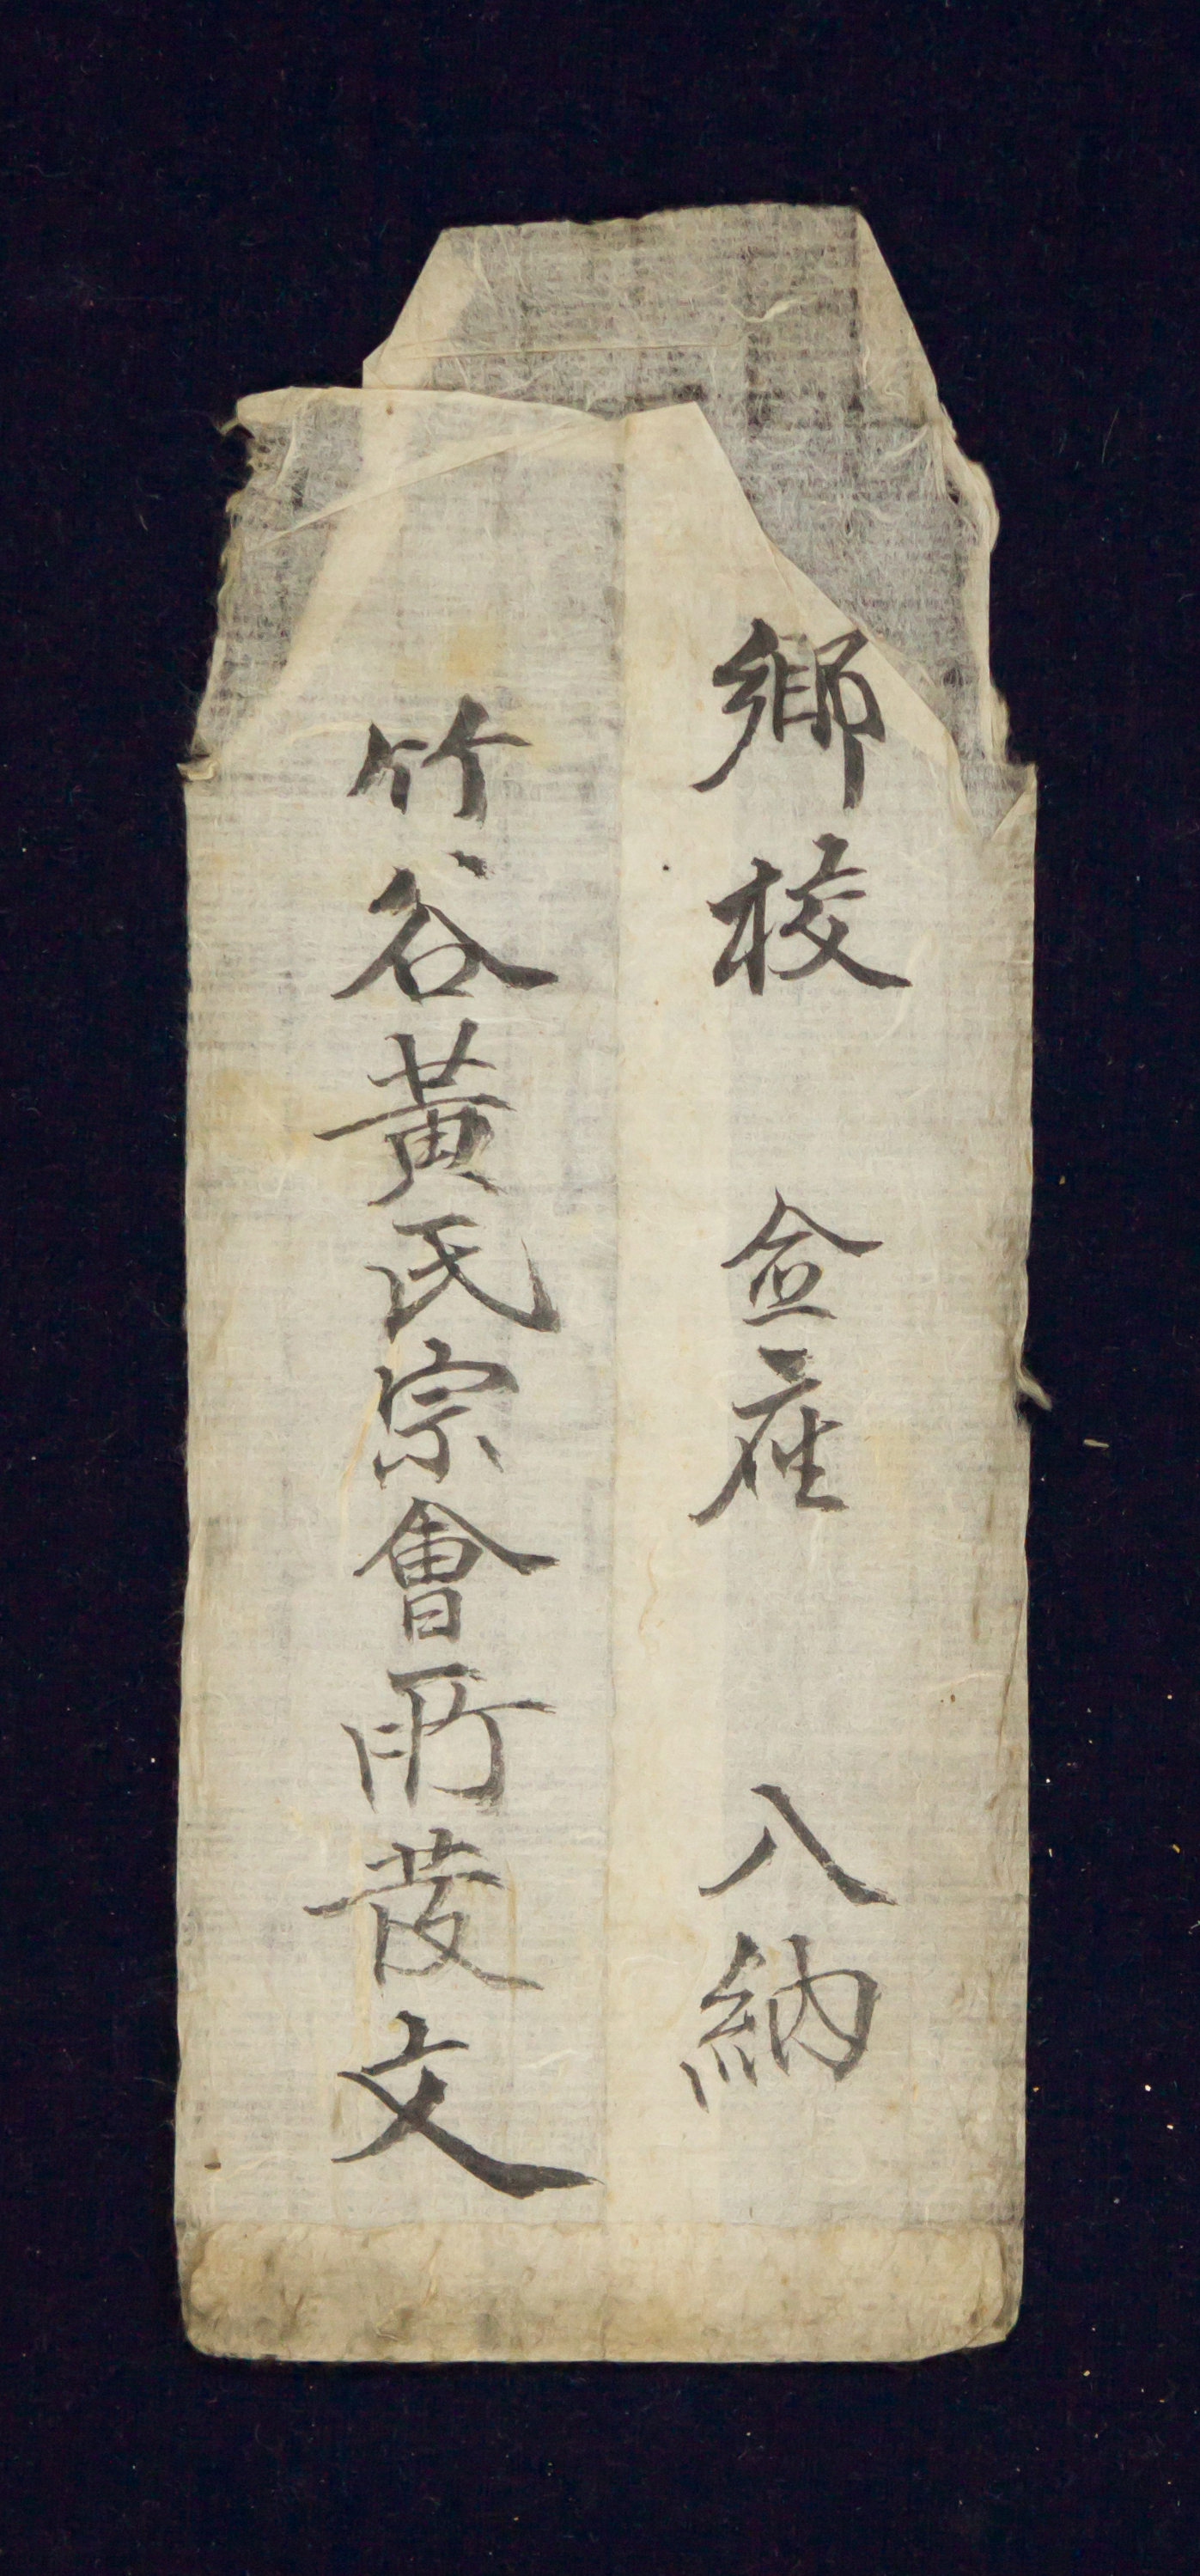 鄕校 僉座 入納
竹谷黃氏宗會所發文